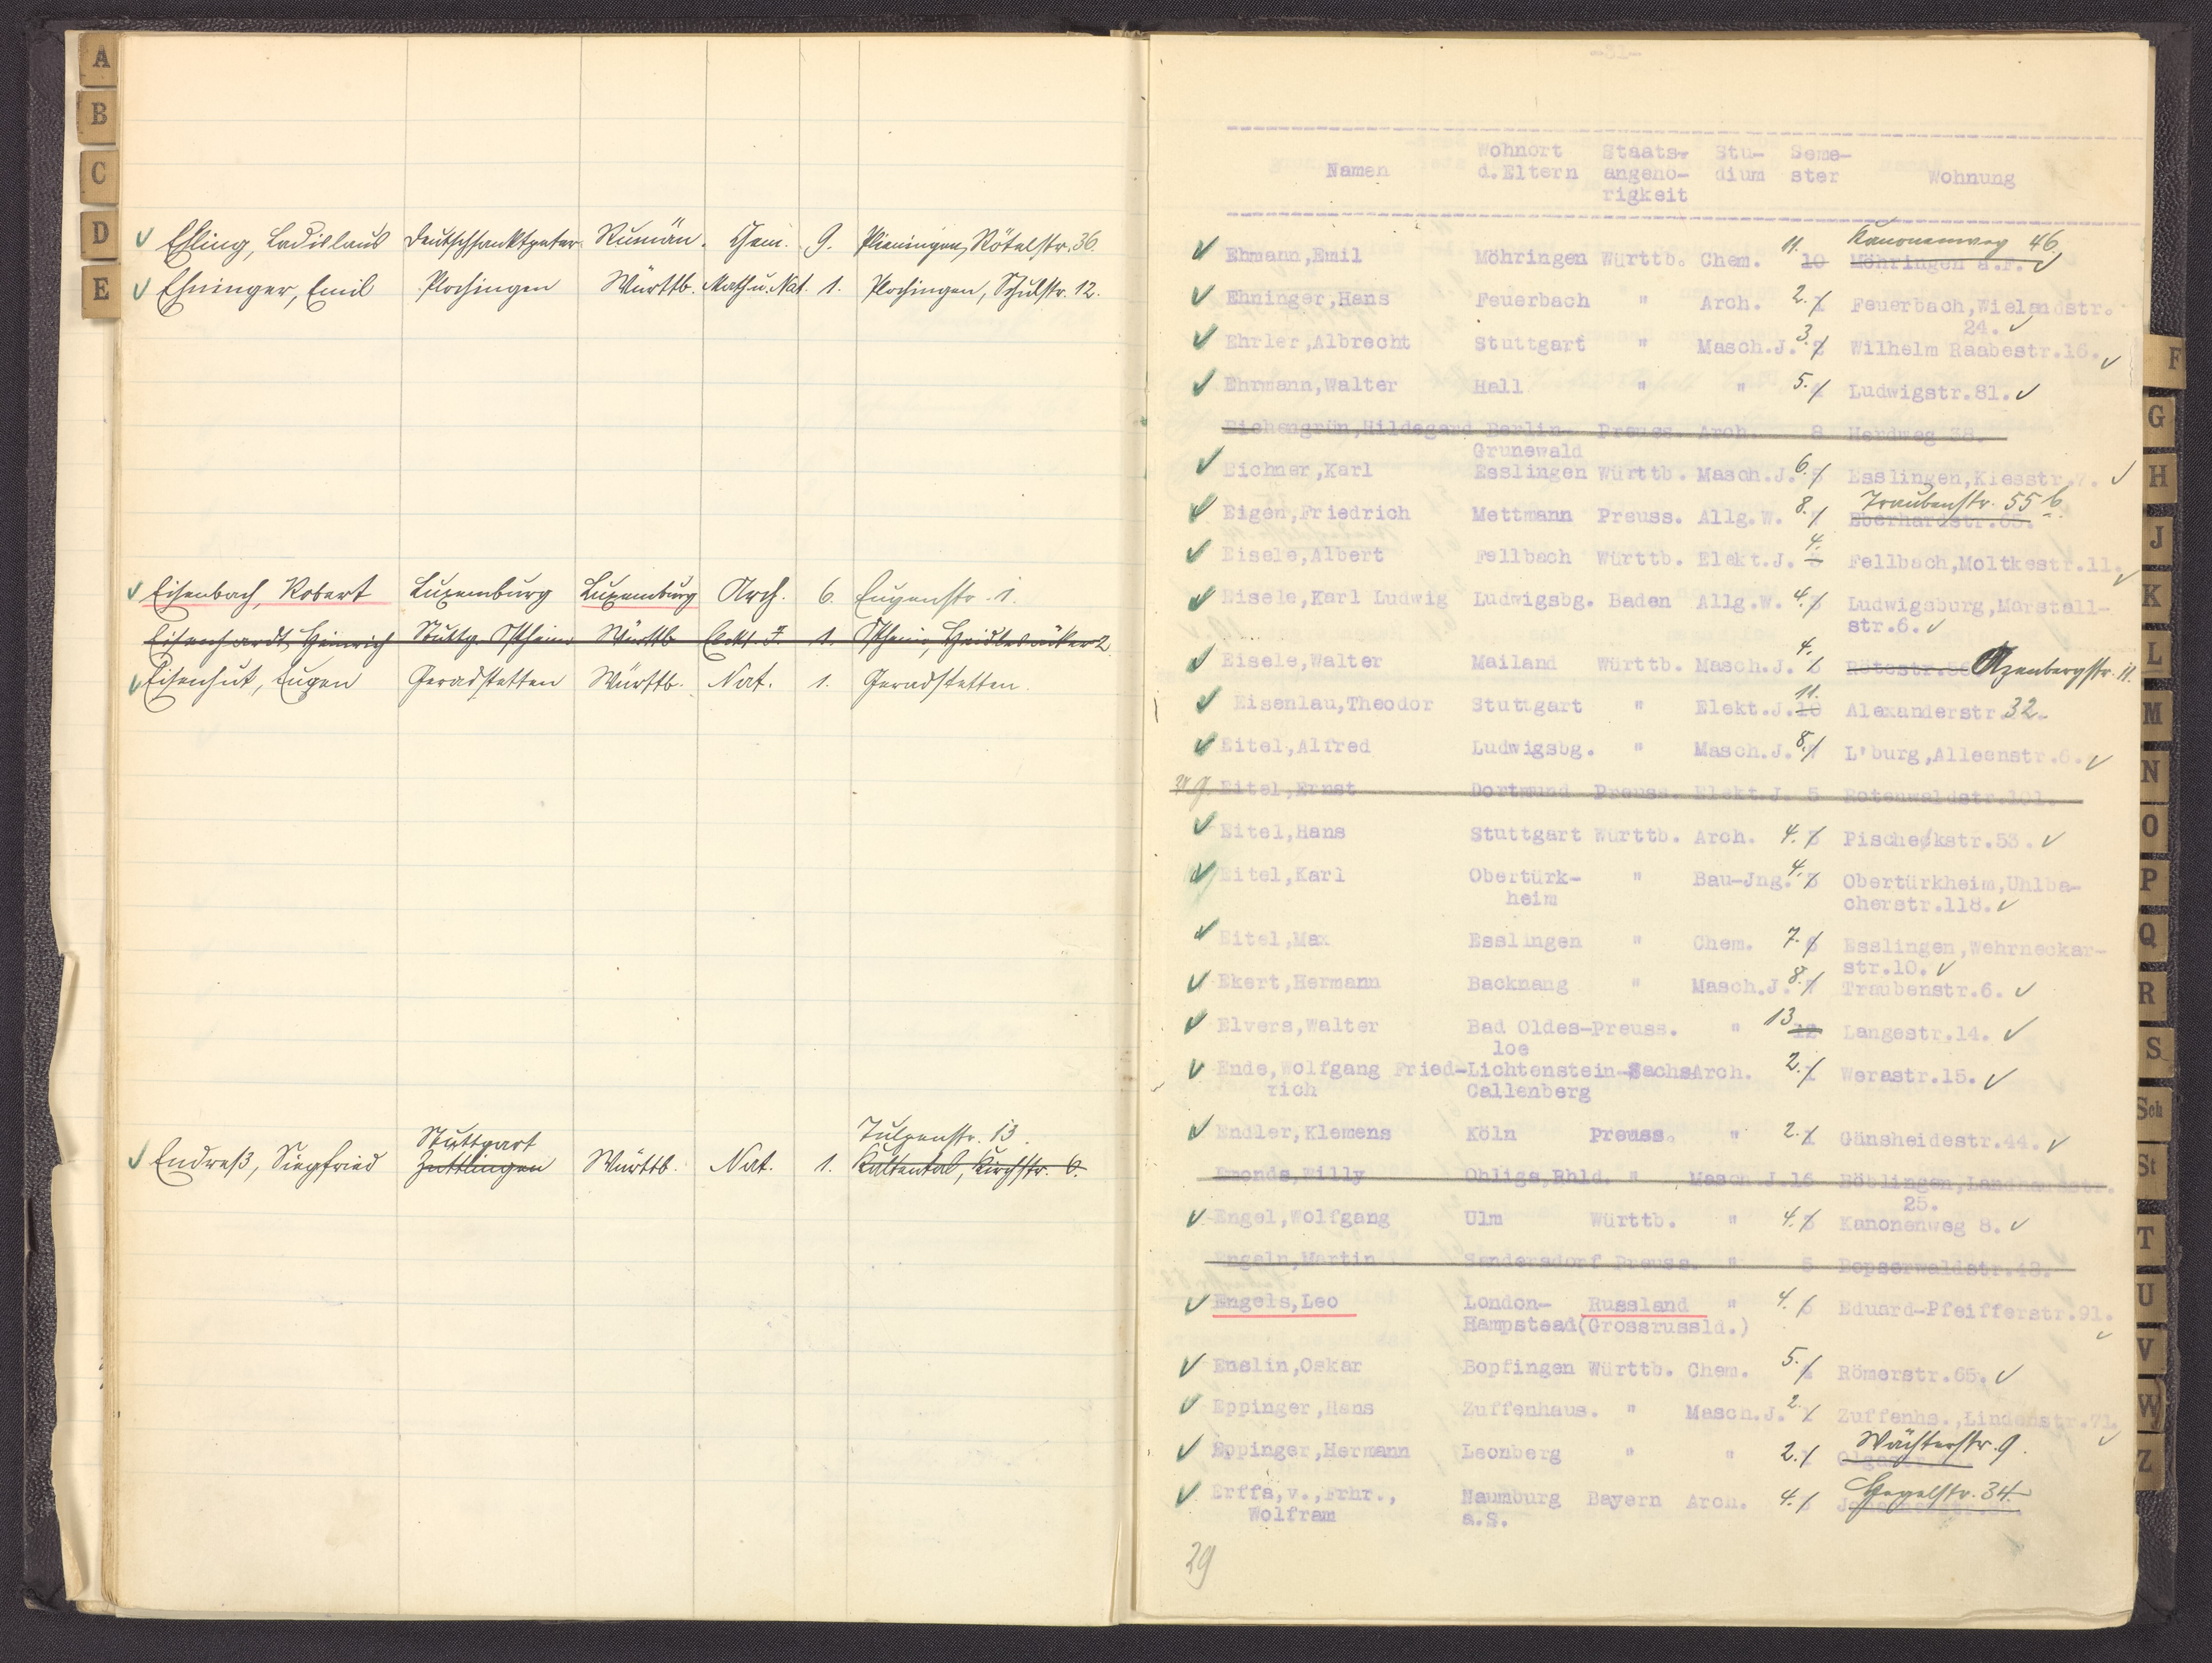 A
B
C
D
E
Ehling, Ladislaus Deutschsanktpeter Rumän. Chem. 9. Plieningen, Rötelstr. 36.
Ehninger, Emil Plochingen Württb. Math u. Nat. 1. Plochingen, Schulstr. 12.
Eisenbach, Robert Luxemburg Luxemburg Arch. 6. Eugenstr. 1.
Eisenhardt, Heinrich Stuttg. Ostheim Württb Elekt. J. 1. Ostheim,
Eisenhut, Eugen Geradstetten Württb. Nat. 1. Geradstetten.
Stuttgart Tulpenstr. 13.
Endreß, Siegfried Württb. Nat. 1. Kaltental, Kirchstr. 6.
-31-
Wohnort Staats- Stu- Seme-
Namen d.Eltern angehö- dium ster Wohnung
rigkeit
11. Kanonenweg 46.
Ehmann,Emil Möhringen Württb. Chem. 10 Möhringen a.F.
Ehninger,Hans Feuerbach " Arch. 2. 1 Feuerbach,Wielandstr.
24.
Ehrler,Albrecht Stuttgart " Masch.J. 3. 2 Wilhelm Raabestr.16.
Ehrmann,Walter Hall " " 5. 4 Ludwigstr.81.
Eichengrün,Hildegard Berlin- Preuss. Arch. 8 Herdweg 38.
Grunewald
Eichner,Karl Esslingen Württb. Masch.J. 6. 5 Esslingen,Kiesstr.7.
Traubenstr. 55 b.
Eigen,Friedrich Mettmann Preuss. Allg.W. 8. 7 Eberhardstr.65.
Eisele,Albert Fellbach Württb. Elekt.J. 4. Fellbach,Moltkestr.11.
Eisele,Karl Ludwig Ludwigsbg. Baden Allg.W. 4. 3 Ludwigsburg,Marstall-
str.6.
Eisele,Walter Mailand Württb. Masch.J. 4. Rötestr.56 Azenbergstr. 11.
Eisenlau,Theodor Stuttgart " Elekt.J. 11. 10 Alexanderstr. 32.
Eitel,Alfred Ludwigsbg. " Masch.J. 8. 7 L'burg,Alleenstr.6.
Eitel,Ernst Dortmund Preuss. Elekt.J. 5 Rotenwaldstr.101.
Eitel,Hans Stuttgart Württb. Arch. 4. 3 Pischeckstr.53.
Eitel,Karl Obertürk- " Bau-Jng. 4. 3 Obertürkheim,Uhlba-
heim cherstr.118.
Eitel,Max Esslingen " Chem. 7. 6 Esslingen,Wehrneckar-
str.10.
Ekert,Hermann Backnang " Masch.J. 8. 7 Traubenstr.6.
Elvers,Walter Bad Oldes-Preuss. " 13 12 Langestr.14.
loe
Ende,Wolfgang Fried-Lichtenstein-SachsArch. 2. 1 Werastr.15.
rich Callenberg
Endler,Klemens Köln Preuss. " 2. 1 Gänsheidestr.44.
Emonds,Willy Ohligs,Rhld. " Masch.J.16 Böblingen,Landhausstr.
25.
Engel,Wolfgang Ulm Württb. " 4. 3 Kanonenweg 8.
Engeln,Martin Sandersdorf Preuss. " 5 Bopserwaldstr.48.
Engels,Leo London- Russland " 4. 3 Eduard-Pfeifferstr.91.
Hampstead(Grossrussld.)
Enslin,Oskar Bopfingen Württb. Chem. 5. 4 Römerstr.65.
Eppinger,Hans Zuffenhaus. " Masch.J. 2. 1 Zuffenhs.,Lindenstr.71.
Wächterstr. 9.
Eppinger,Hermann Leonberg " " 2. 1
Hegelstr. 34.
Erffa,v.,Frhr., Naumburg Bayern Arch. 4.
Wolfram a.S.
29
F
G
H
J
K
L
M
N
O
P
Q
R
S
Sch
St
T
U
V
W
Z